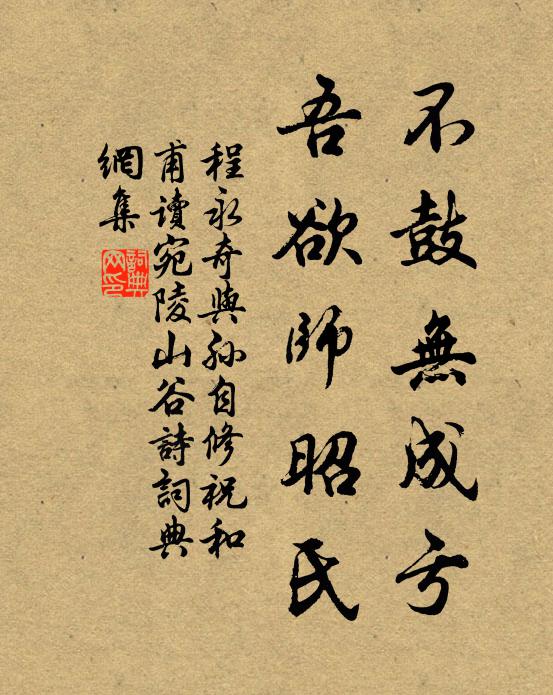 不鼓無成亏
吾欲師昭氏
程永奇與孙自修祝和
甫讀宛陵山谷詩詞典
網集
詞典网印